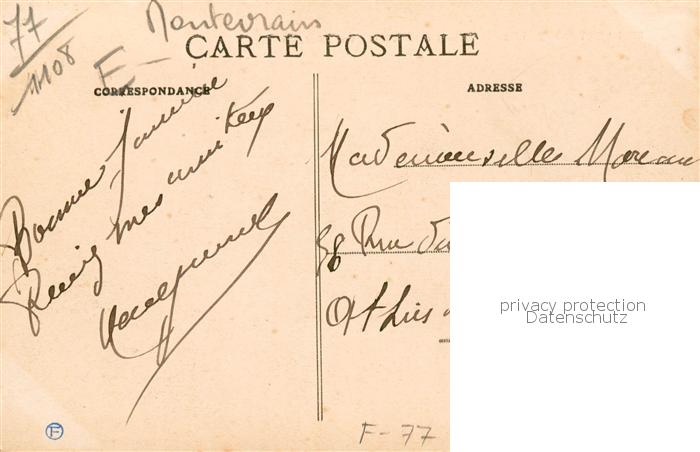 77
1108
Montevrain
E-
CARTE POSTALE
CORRESPONDANCE
ADRESSE
Bonne
mes
Mademoiselle Moreau
58 Rue du
Athis
privacy protection
Datenschutz
F-77
F